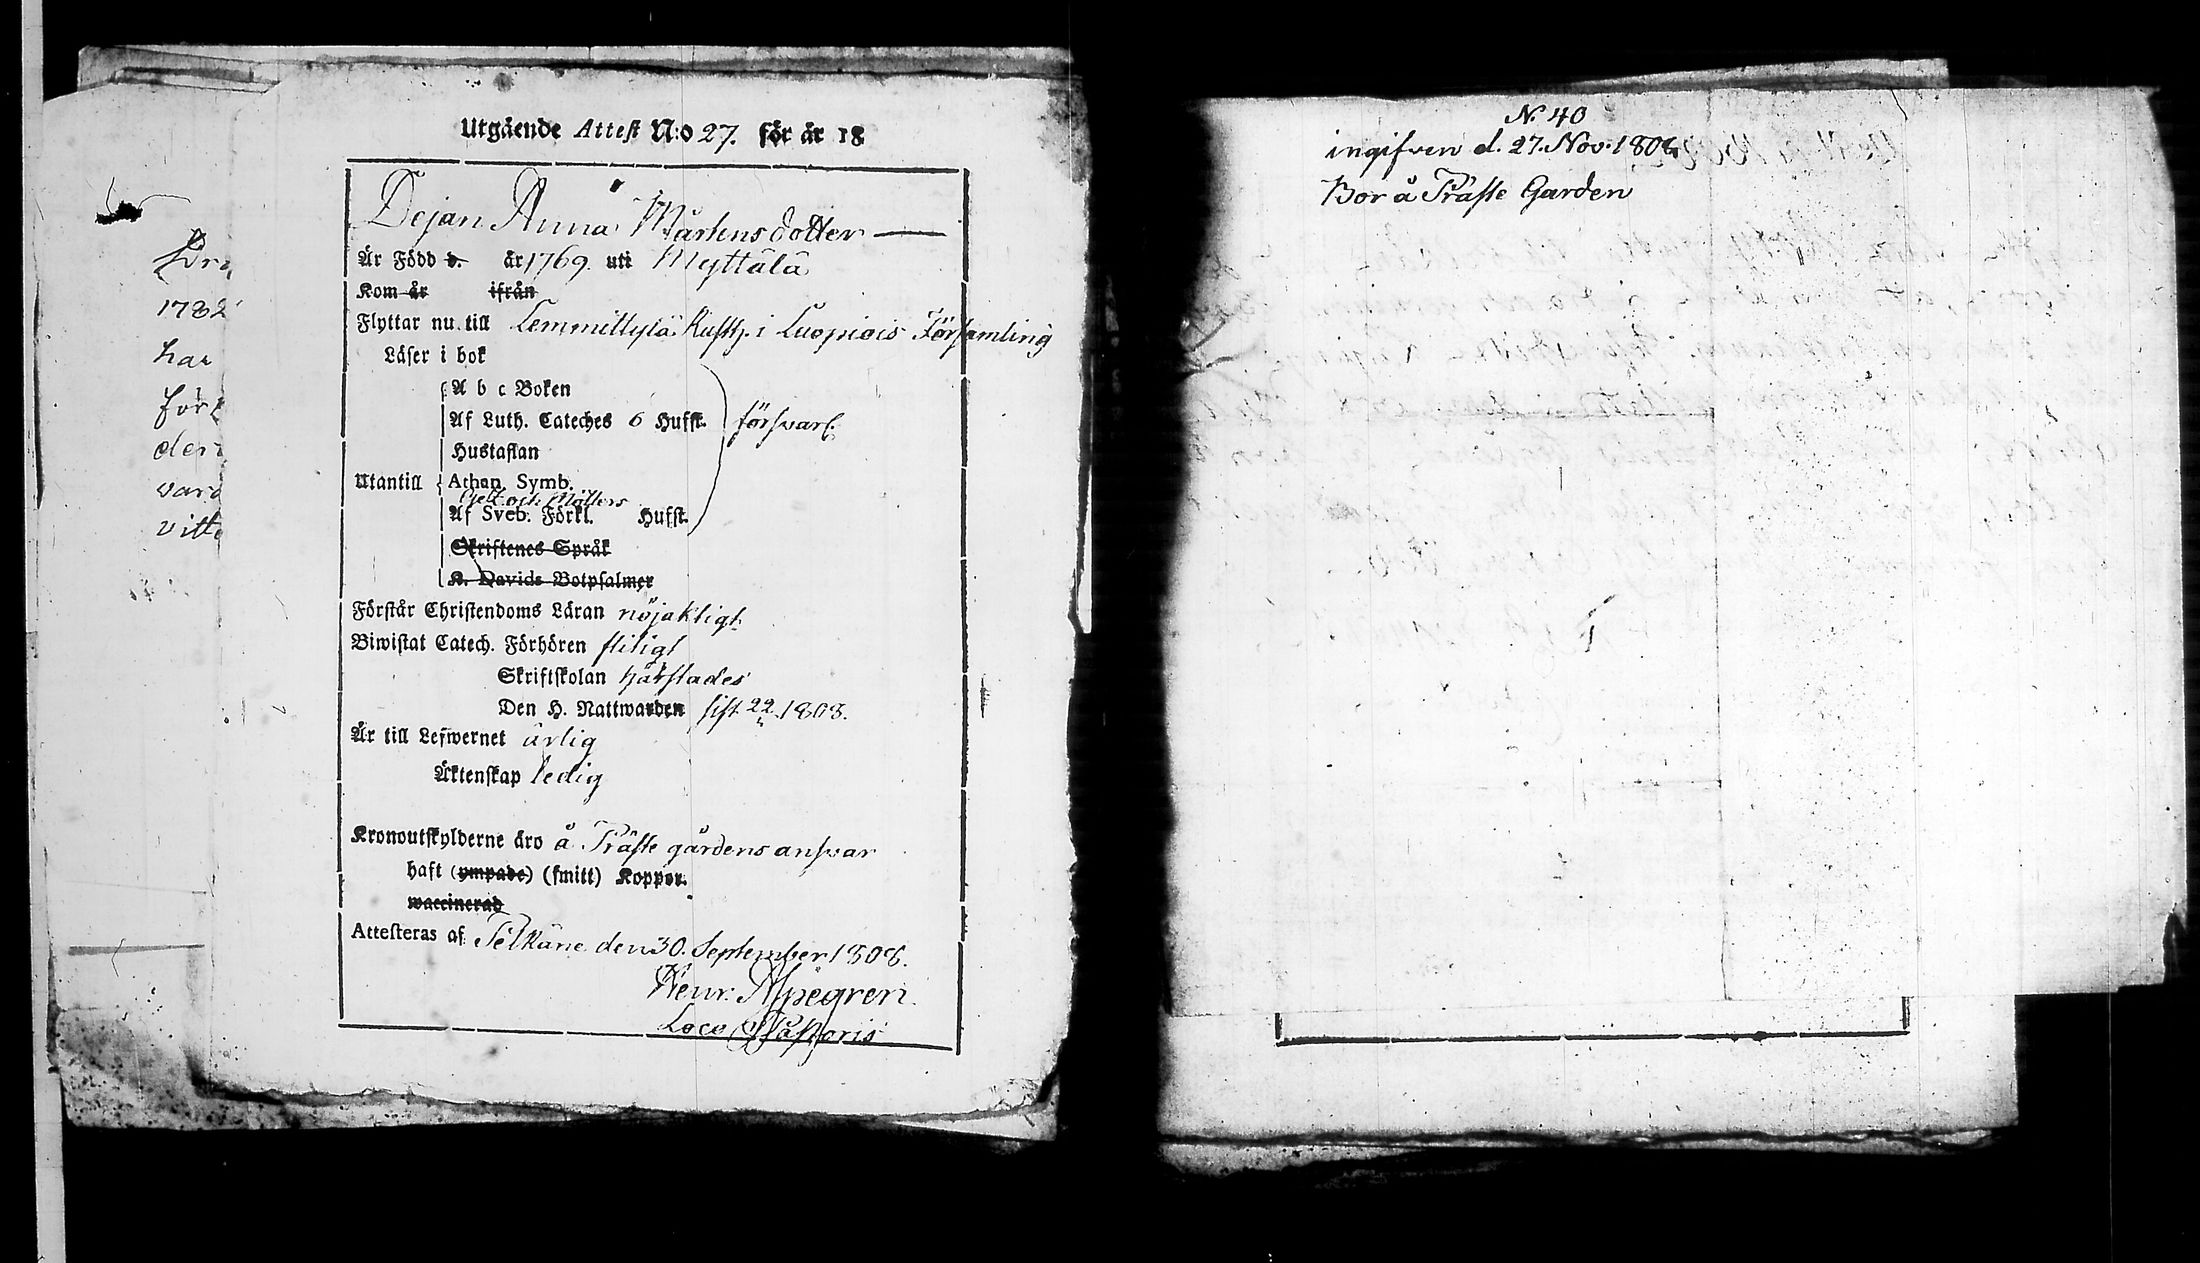 Utgående Attest N:o 27. för år 18
Dejan Anna Mårtensdotter
Är Född d. år 1769. uti Myttälä
Kom år ifrån
Flyttar nu till Lemmittylä Rusth. i Luopiois Församling
Läser i bok
A b c Boken
Af Luth. Cateches 6 Hufst. försvarl.
Hustaflan
Utantill Athan. Symb.
Gelt och Möllers
Af Sveb. Förkl. Hufst.
Skriftenes Språk
K. Davids Botpsalmer
Förstår Christendoms Läran nöjaktigt
Biwistat Catech. Förhören flitigt
Skriftskolan härstades
Den H. Nattwarden sist 22 1808.
Är till Lefwernet ärlig
Äktenskap ledig
Kronoutskylderne äro å Präste gårdens answar
haft (ympade) (smitt) Koppor.
waccinerad
Attesteras af Pelkäne den 30. September 1808.
Henr. Alpegren
Loco Pastoris
1782
har
den
vard
vitt
N. 40
ingifven d. 27. Nov. 1808
Bor å Präste Garden